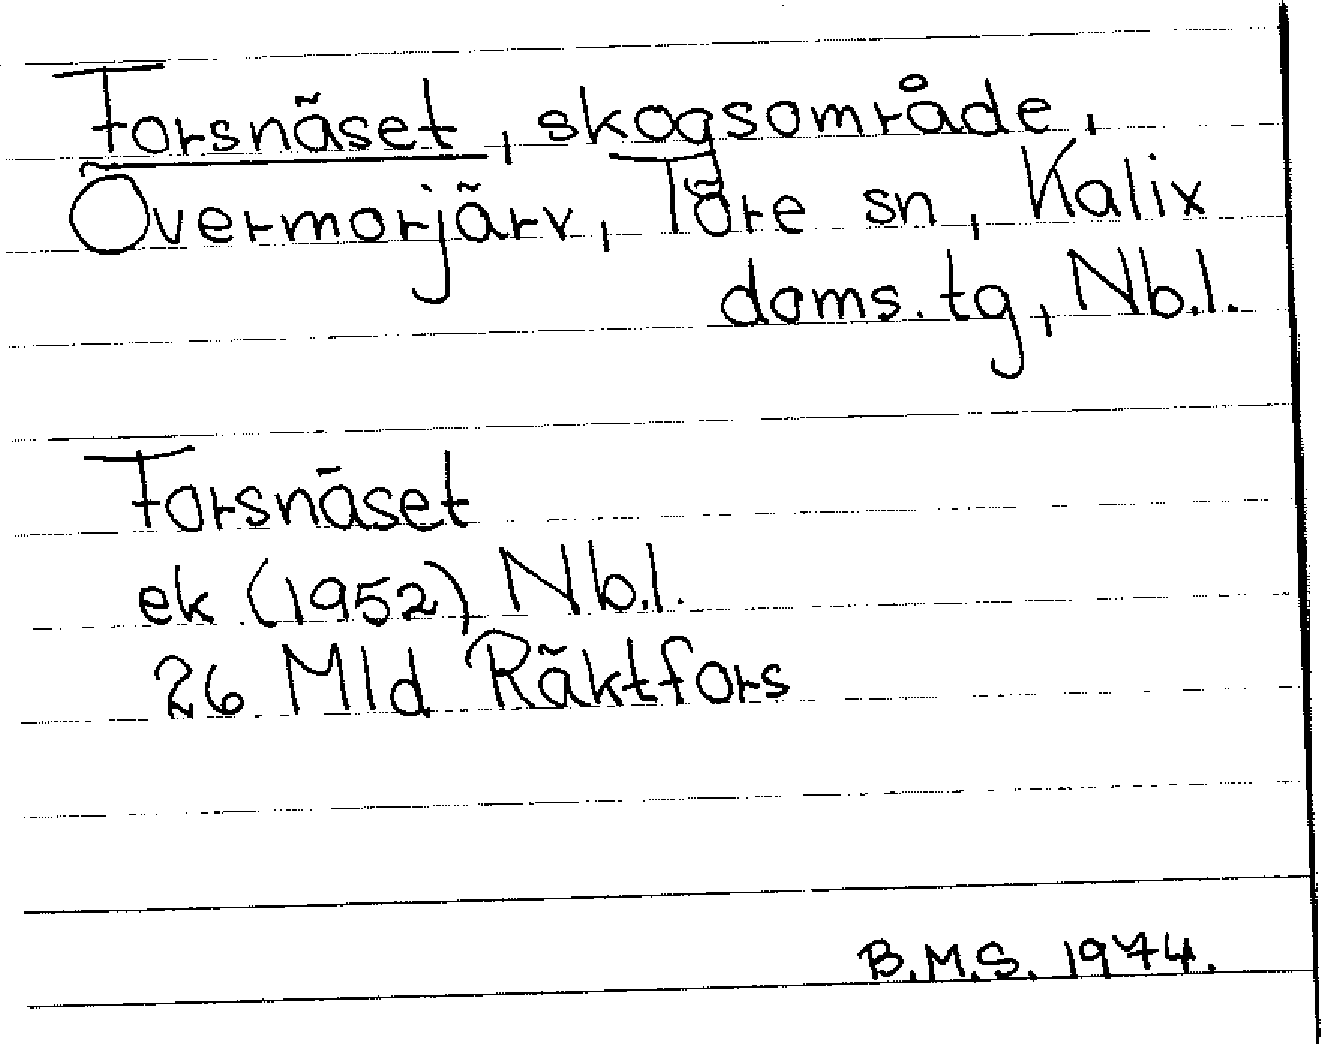 Forsnäset, skogsområde,
Övermorjärv, Töre sn, Kalix
doms. tg, Nb.l.
Forsnäset
ek (1952) Nb.l.
26 Mld Räktfors
B.M.S. 1974.